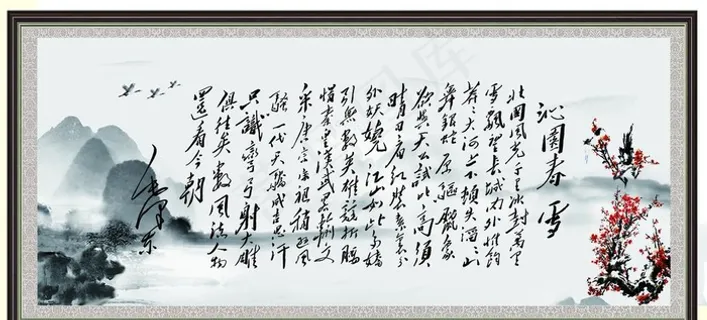 沁園春 雪
北國風光千里冰封萬里
雪飄望長城內外惟餘
莽々大河上下頓失滔々山
舞銀蛇原驅蠟象
欲與天公試比高須
晴日看紅裝素裹分
外妖嬈 江山如此多嬌
引無數英雄競折腰
惜秦皇漢武略輸文
采唐宗宋祖稍遜風
騷一代天驕成吉思汗
只識彎弓射大雕
俱往矣數風流人物
還看今朝
毛澤東